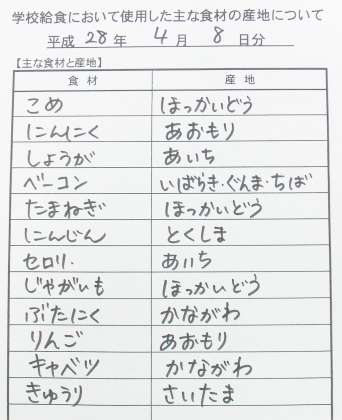 学校給食において使用した主な食材の産地について
平成 28 年 4 月 8 日分
【主な食材と産地】
食 材 産 地
こめ ほっかいどう
にんにく あおもり
しょうが あいち
ベーコン いばらき・ぐんま・ちば
たまねぎ ほっかいどう
にんじん とくしま
セロリ・ あいち
じゃがいも ほっかいどう
ぶたにく かながわ
りんご あおもり
キャベツ かながわ
きゅうり さいたま